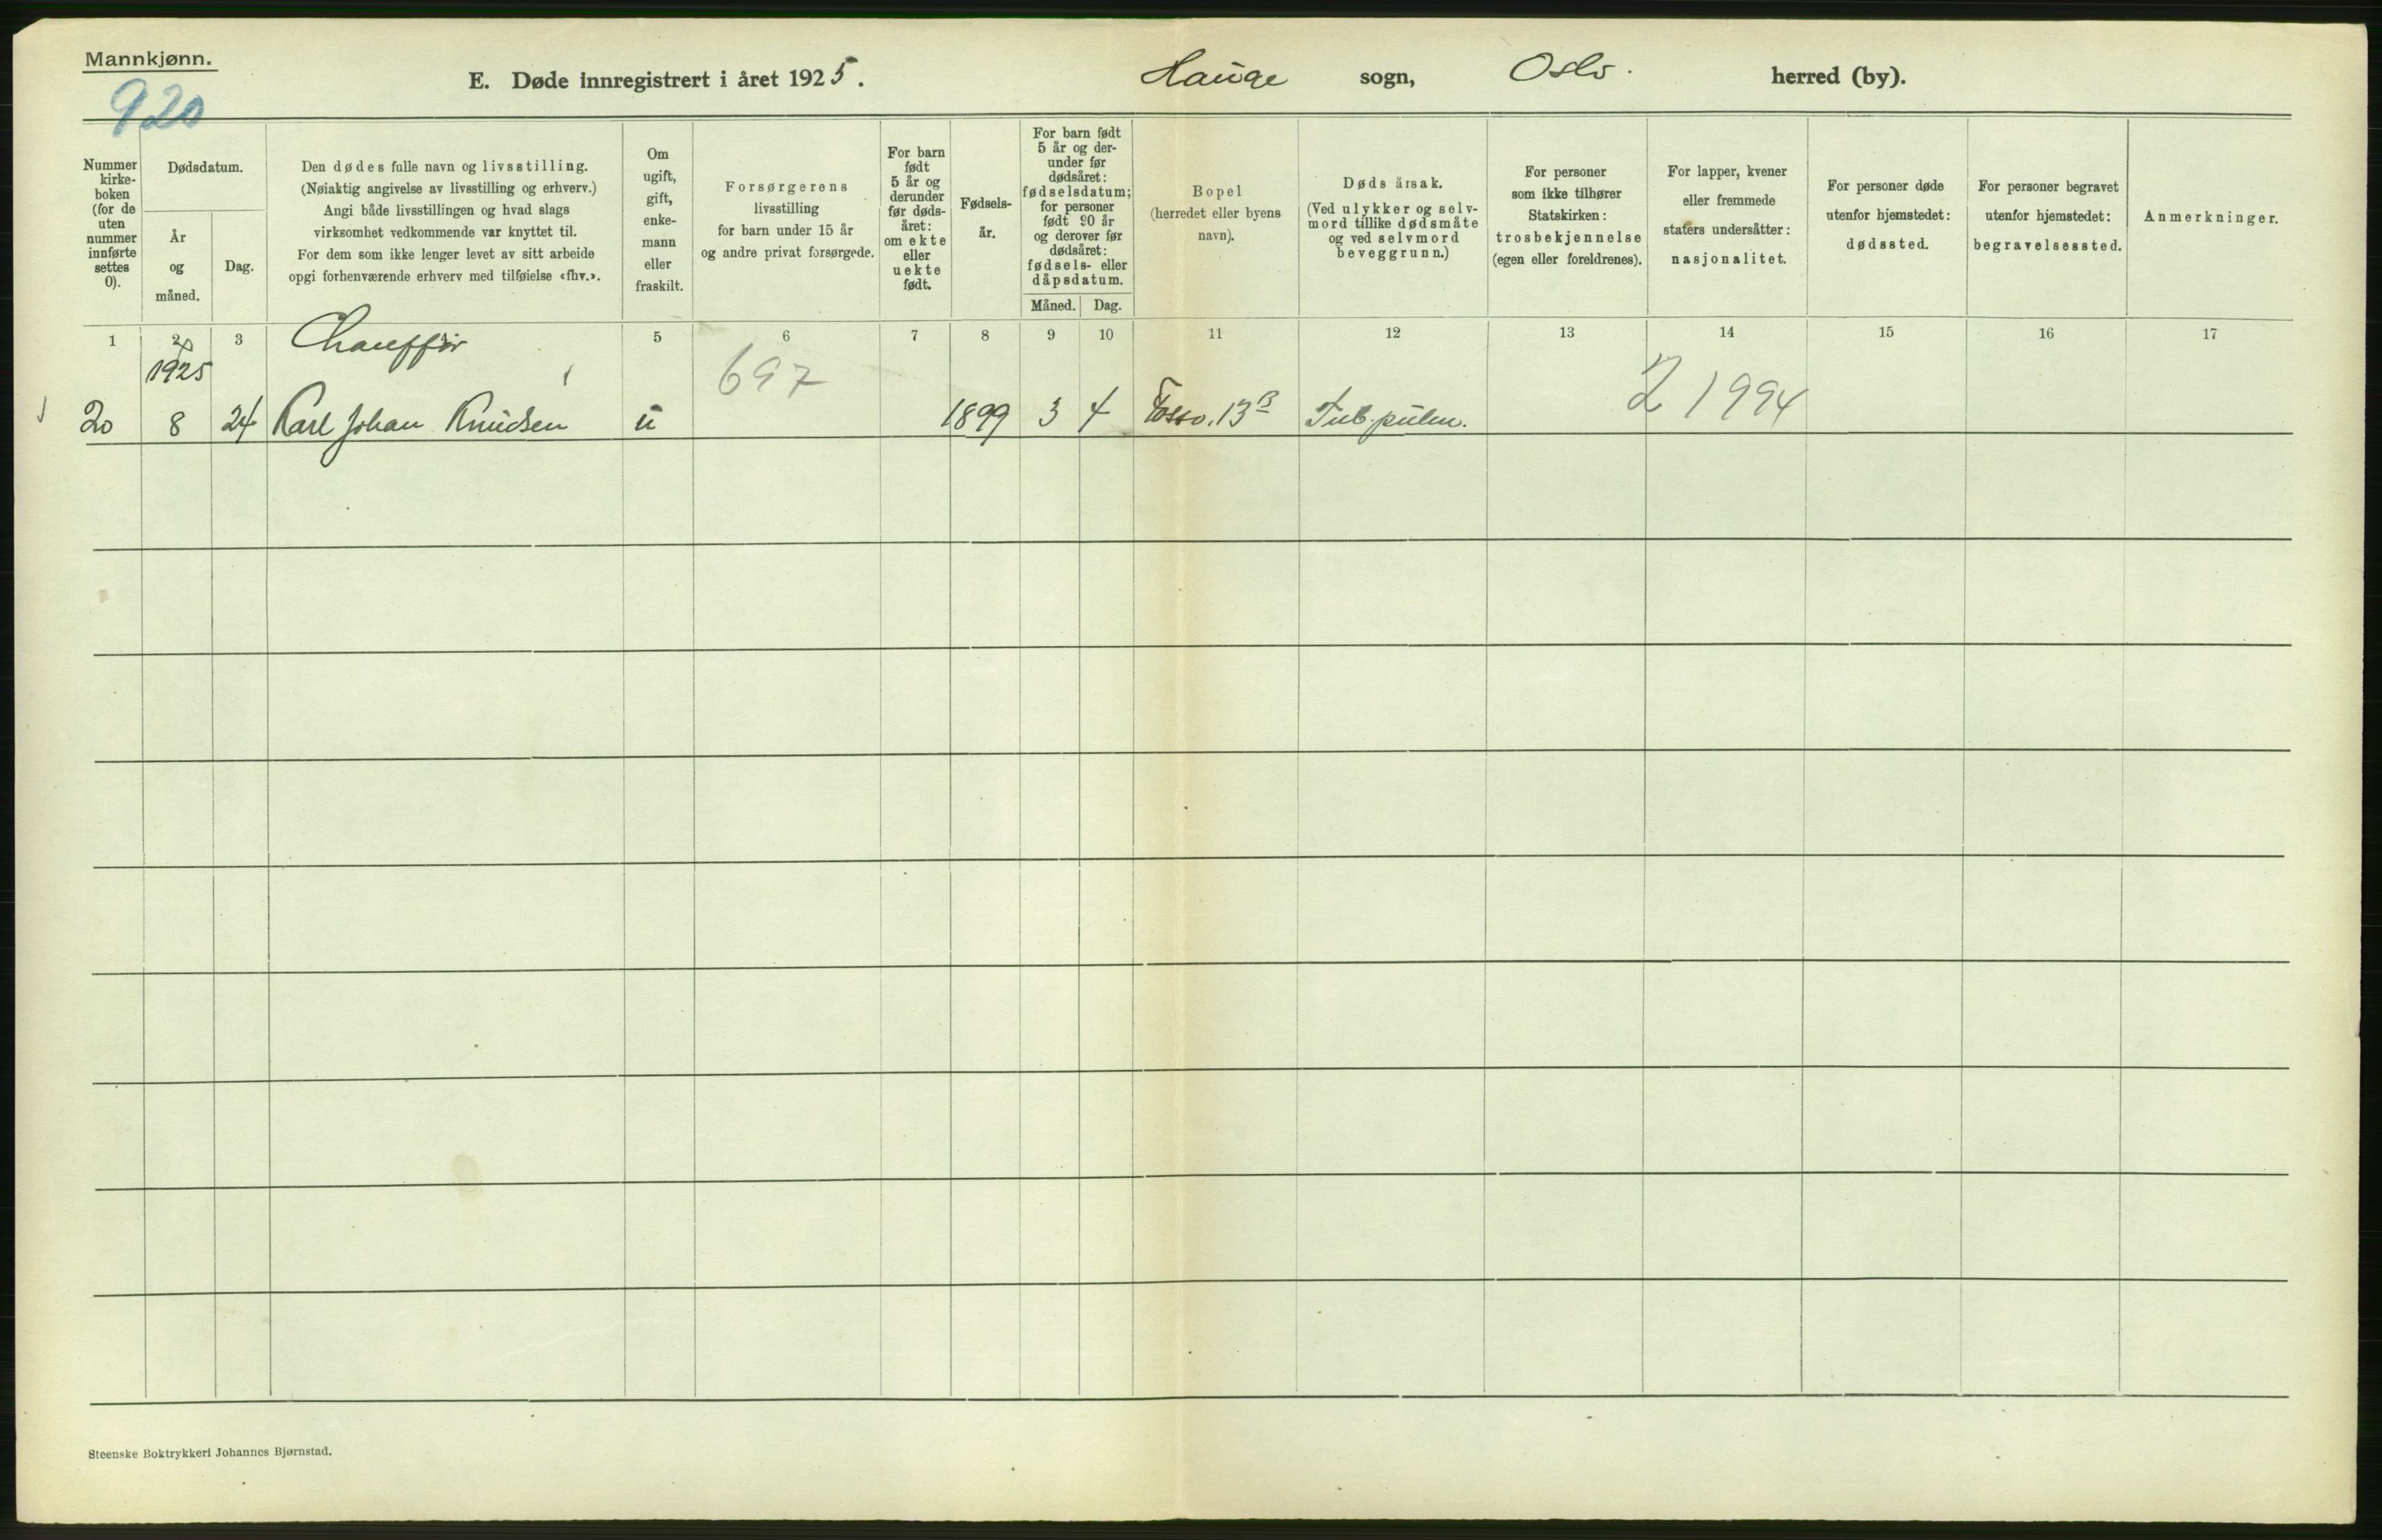 Mannkjønn.
920
E. Døde innregistrert i året 1925. Hauge sogn, Oslo. herred (by).
Nummer kirke-boken (for de uten nummer innførte settes 0).
Dødsdatum.
År og måned.
Dag.
Den dødes fulle navn og livsstilling.
(Nøiaktig angivelse av livsstilling og erhverv.)
Angi både livsstillingen og hvad slags
virksomhet vedkommende var knyttet til.
For dem som ikke lenger levet av sitt arbeide
opgi forhenværende erhverv med tilføielse «fhv.».
Om ugift, gift, enke-mann eller fraskilt.
Forsørgerens
livsstilling
for barn under 15 år
og andre privat forsørgede.
For barn født 5 år og derunder før døds-året: om ekte eller uekte født.
Fødsels-år.
For barn født 5 år og der-under før dødsåret: fødselsdatum; for personer født 90 år og derover før dødsåret: fødsels- eller dåpsdatum.
Måned. Dag.
Bopel
(herredet eller byens
navn).
Dødsårsak.
(Ved ulykker og selv-
mord tillike dødsmåte
og ved selvmord
beveggrunn.)
For personer
som ikke tilhører
Statskirken:
trosbekjennelse
(egen eller foreldrenes).
For lapper, kvener
eller fremmede
staters undersåtter:
nasjonalitet.
For personer døde
utenfor hjemstedet:
dødssted.
For personer begravet
utenfor hjemstedet:
begravelsessted.
Anmerkninger.
1 2 3 4 5 6 7 8 9 10 11 12 13 14 15 16 17
Chauffør
1925 697 21994
20 8 24 Karl Johan Knudsen u 1899 3 4 Fossv. 13B Tub. pulm.
Steenske Boktrykkeri Johannes Bjørnstad.